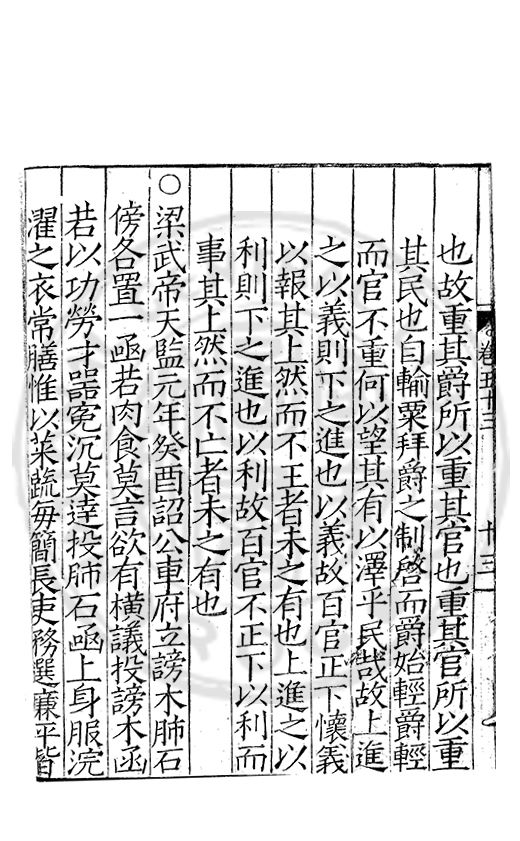 卷五十三
十三
也故重其爵所以重其官也重其官所以重
其民也自輸粟拜爵之制啓而爵始輕爵輕
而官不重何以望其有以澤乎民哉故上進
之以義則下之進也以義故百官正下懷義
以報其上然而不王者未之有也上進之以
利則下之進也以利故百官不正下以利而
事其上然而不亡者未之有也
○梁武帝天監元年癸酉詔公車府立謗木肺石
傍各置一函若肉食莫言欲有橫議投謗木函
若以功勞才器冤沉莫達投肺石函上身服浣
濯之衣常膳惟以菜蔬每簡長吏務選廉平皆